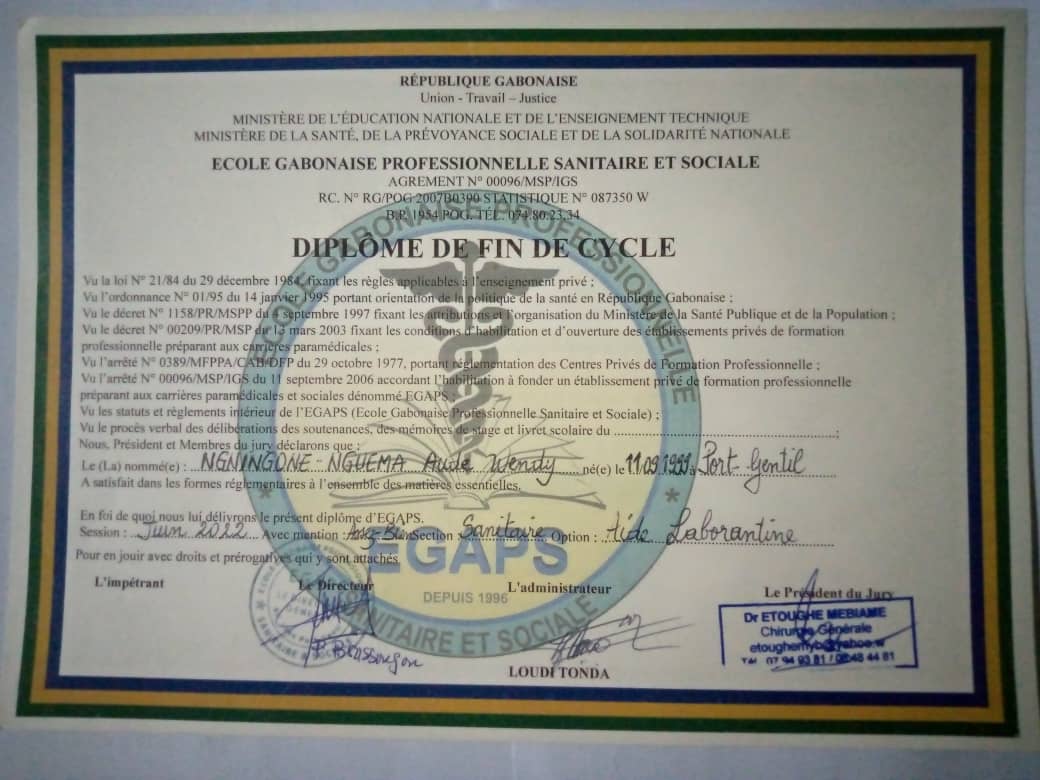 RÉPUBLIQUE GABONAISE
Union - Travail – Justice
MINISTÈRE DE L'ÉDUCATION NATIONALE ET DE L'ENSEIGNEMENT TECHNIQUE
MINISTÈRE DE LA SANTÉ, DE LA PRÉVOYANCE SOCIALE ET DE LA SOLIDARITÉ NATIONALE
ECOLE GABONAISE PROFESSIONNELLE SANITAIRE ET SOCIALE
AGREMENT N° 00096/MSP/IGS
RC. N° RG/POG 2007B0390 STATISTIQUE N° 087350 W
B.P. 1954 POG. TÉL. 074.80.23.34
DIPLÔME DE FIN DE CYCLE
Vu la loi N° 21/84 du 29 décembre 1984, fixant les règles applicables à l'enseignement privé ;
Vu l'ordonnance N° 01/95 du 14 janvier 1995 portant orientation de la politique de la santé en République Gabonaise ;
Vu le décret N° 1158/PR/MSPP du 4 septembre 1997 fixant les attributions et l'organisation du Ministère de la Santé Publique et de la Population ;
Vu le décret N° 00209/PR/MSP du 13 mars 2003 fixant les conditions d'habilitation et d'ouverture des établissements privés de formation
professionnelle préparant aux carrières paramédicales ;
Vu l'arrêté N° 0389/MFPPA/CAB/DFP du 29 octobre 1977, portant réglementation des Centres Privés de Formation Professionnelle ;
Vu l'arrêté N° 00096/MSP/IGS du 11 septembre 2006 accordant l'habilitation à fonder un établissement privé de formation professionnelle
préparant aux carrières paramédicales et sociales dénommé EGAPS ;
Vu les statuts et règlements intérieur de l'EGAPS (Ecole Gabonaise Professionnelle Sanitaire et Sociale) ;
Vu le procès verbal des délibérations des soutenances, des mémoires de stage et livret scolaire du ;
Nous, Président et Membres du jury déclarons que :
Le (La) nommé(e) : NGNINGONE NGUEMA Aude Wendy né(e) le 11 09 1999 à Port-Gentil
A satisfait dans les formes réglementaires à l'ensemble des matières essentielles.
En foi de quoi nous lui délivrons le présent diplôme d'EGAPS.
Session : Juin 2022 Avec mention : Assez-Bien Section : Sanitaire Option : Aide Laborantine
Pour en jouir avec droits et prérogatives qui y sont attachés.
L'impétrant Le Directeur L'administrateur Le Président du Jury
LOUDI TONDA
Dr ETOUGHE MEBIAME
Chirurgie Générale
ECOLE GABONAISE PROFESSIONNELLE
SANITAIRE ET SOCIALE
EGAPS
DEPUIS 1996